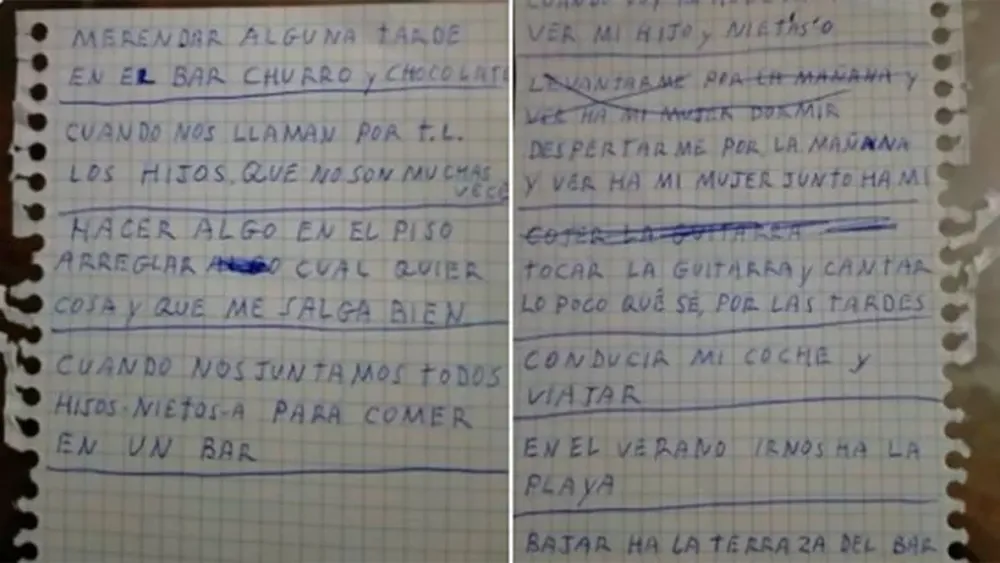 MERENDAR ALGUNA TARDE
EN EL BAR CHURRO y CHOCOLATE
CUANDO NOS LLAMAN POR T.L.
LOS HIJOS. QUE NO SON MUCHAS
VECE
HACER ALGO EN EL PISO
ARREGLAR ALGO CUAL QUIER
COSA y QUE ME SALGA BIEN
CUANDO NOS JUNTAMOS TODOS
HIJOS-NIETOS-A PARA COMER
EN UN BAR
VER MI HIJO y NIETAS'O
LEVANTARME POR LA MAÑANA y
VER HA MI MUJER DORMIR
DESPERTARME POR LA MAÑANA
Y VER HA MI MUJER JUNTO HA MI
COJER LA GUITARRA
TOCAR LA GUITARRA y CANTAR
LO POCO QUÉ SÉ, POR LAS TARDES
CONDUCIR MI COCHE y
VIAJAR
EN EL VERANO IRNOS HA LA
PLAYA
BAJAR HA LA TERRAZA DEL BAR